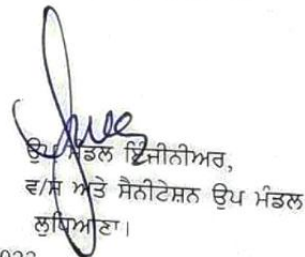 ਉਪ ਮੰਡਲ ਇੰਜੀਨੀਅਰ,
ਵ/ਸ ਅਤੇ ਸੈਨੀਟੇਸ਼ਨ ਉਪ ਮੰਡਲ
ਲੁਧਿਆਣਾ।